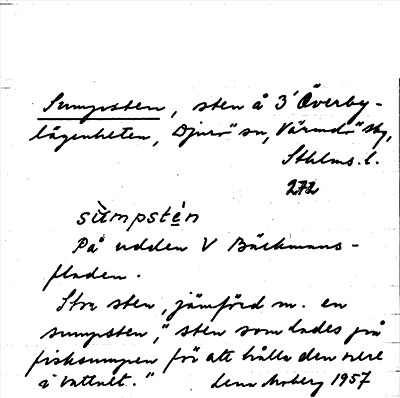 Sumpsten, sten å 3' Överby-
lägenheten, Djurö sn, Värmdö skg,
Sthlms. l.
272
sùmpstén
På udden V Bäckmans-
fladen.
Stor sten, jämförd m. en
sumpsten, "sten som lades på
fisksumpen för att hålla den nere
i vattnet."
Lena Moberg 1957